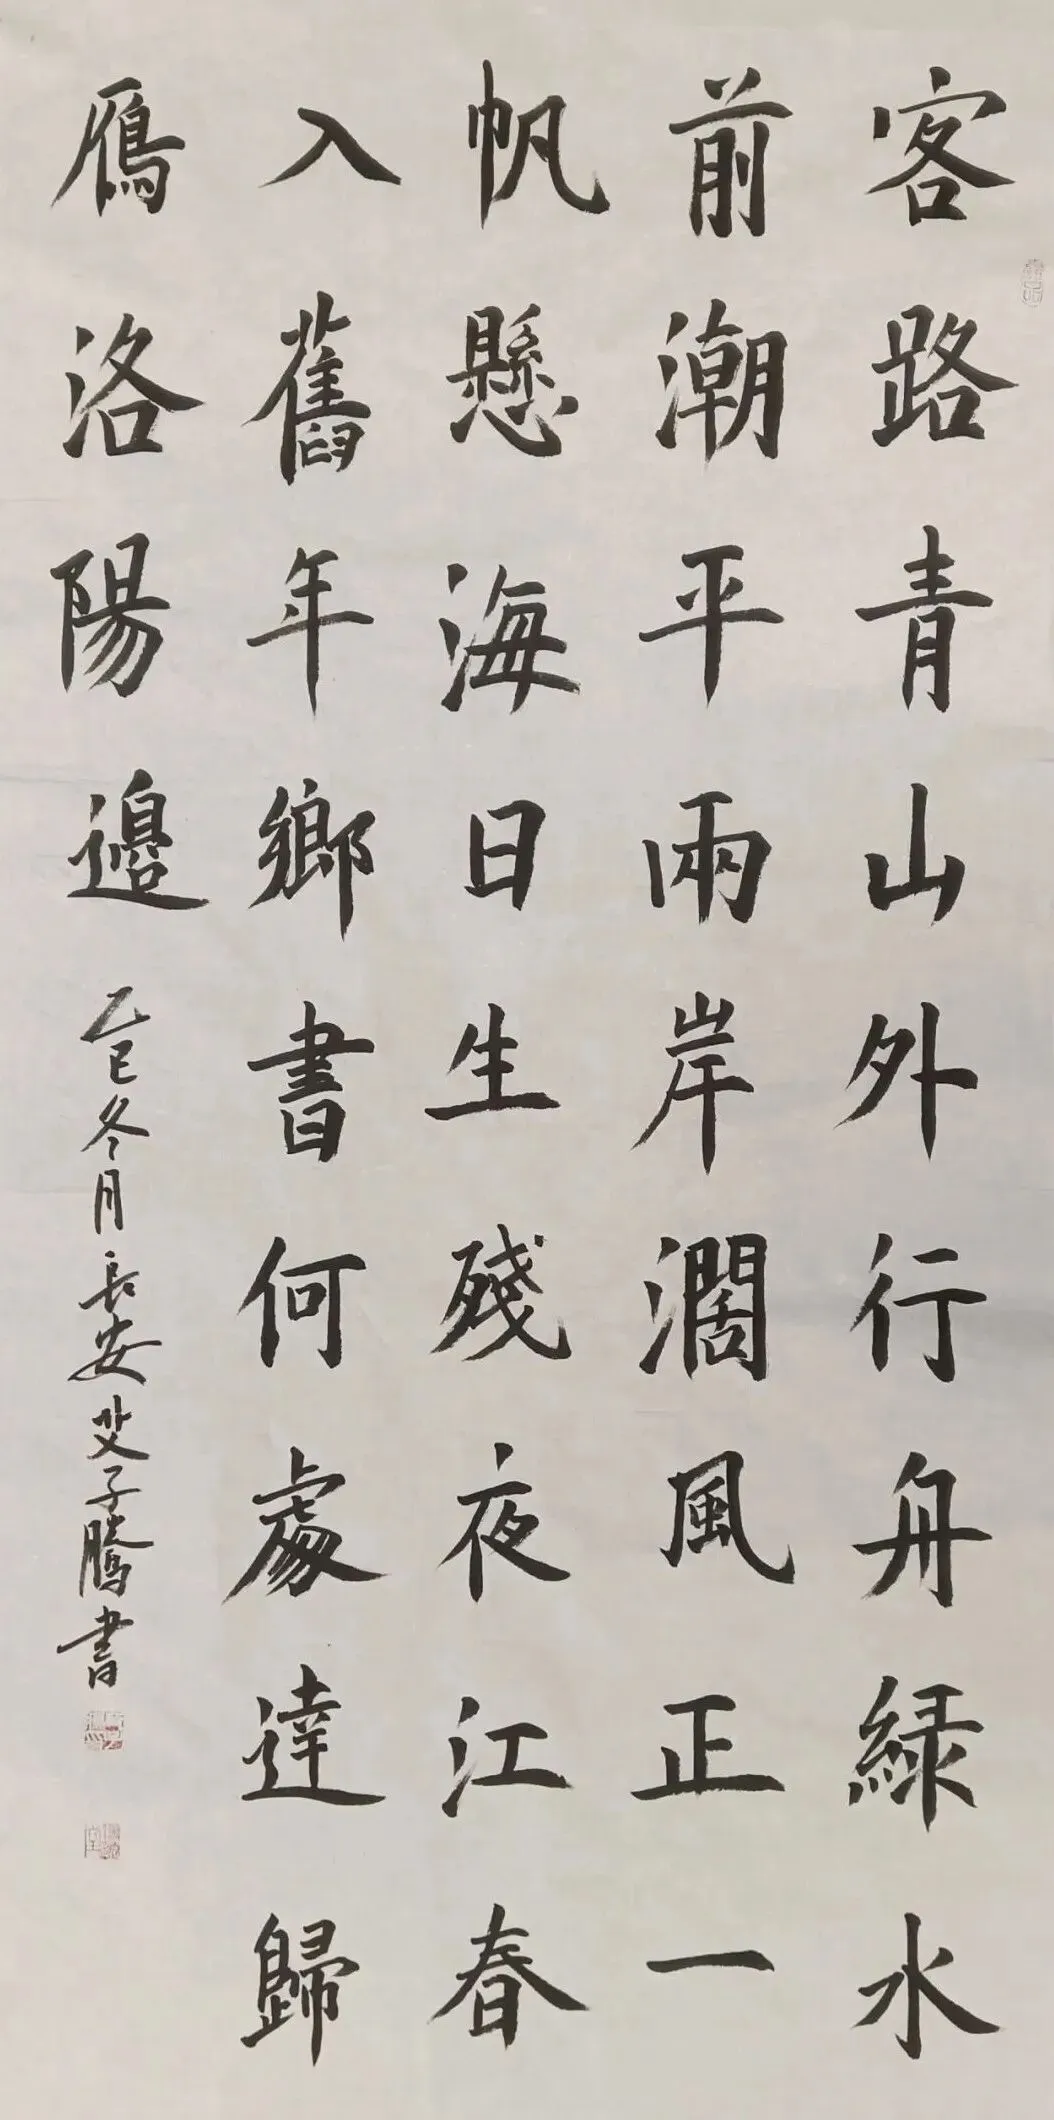 客路青山外行舟緑水
前潮平兩岸濶風正一
帆懸海日生殘夜江春
入舊年鄉書何處達歸
鴈洛陽邊
乙巳冬月長安艾子騰書